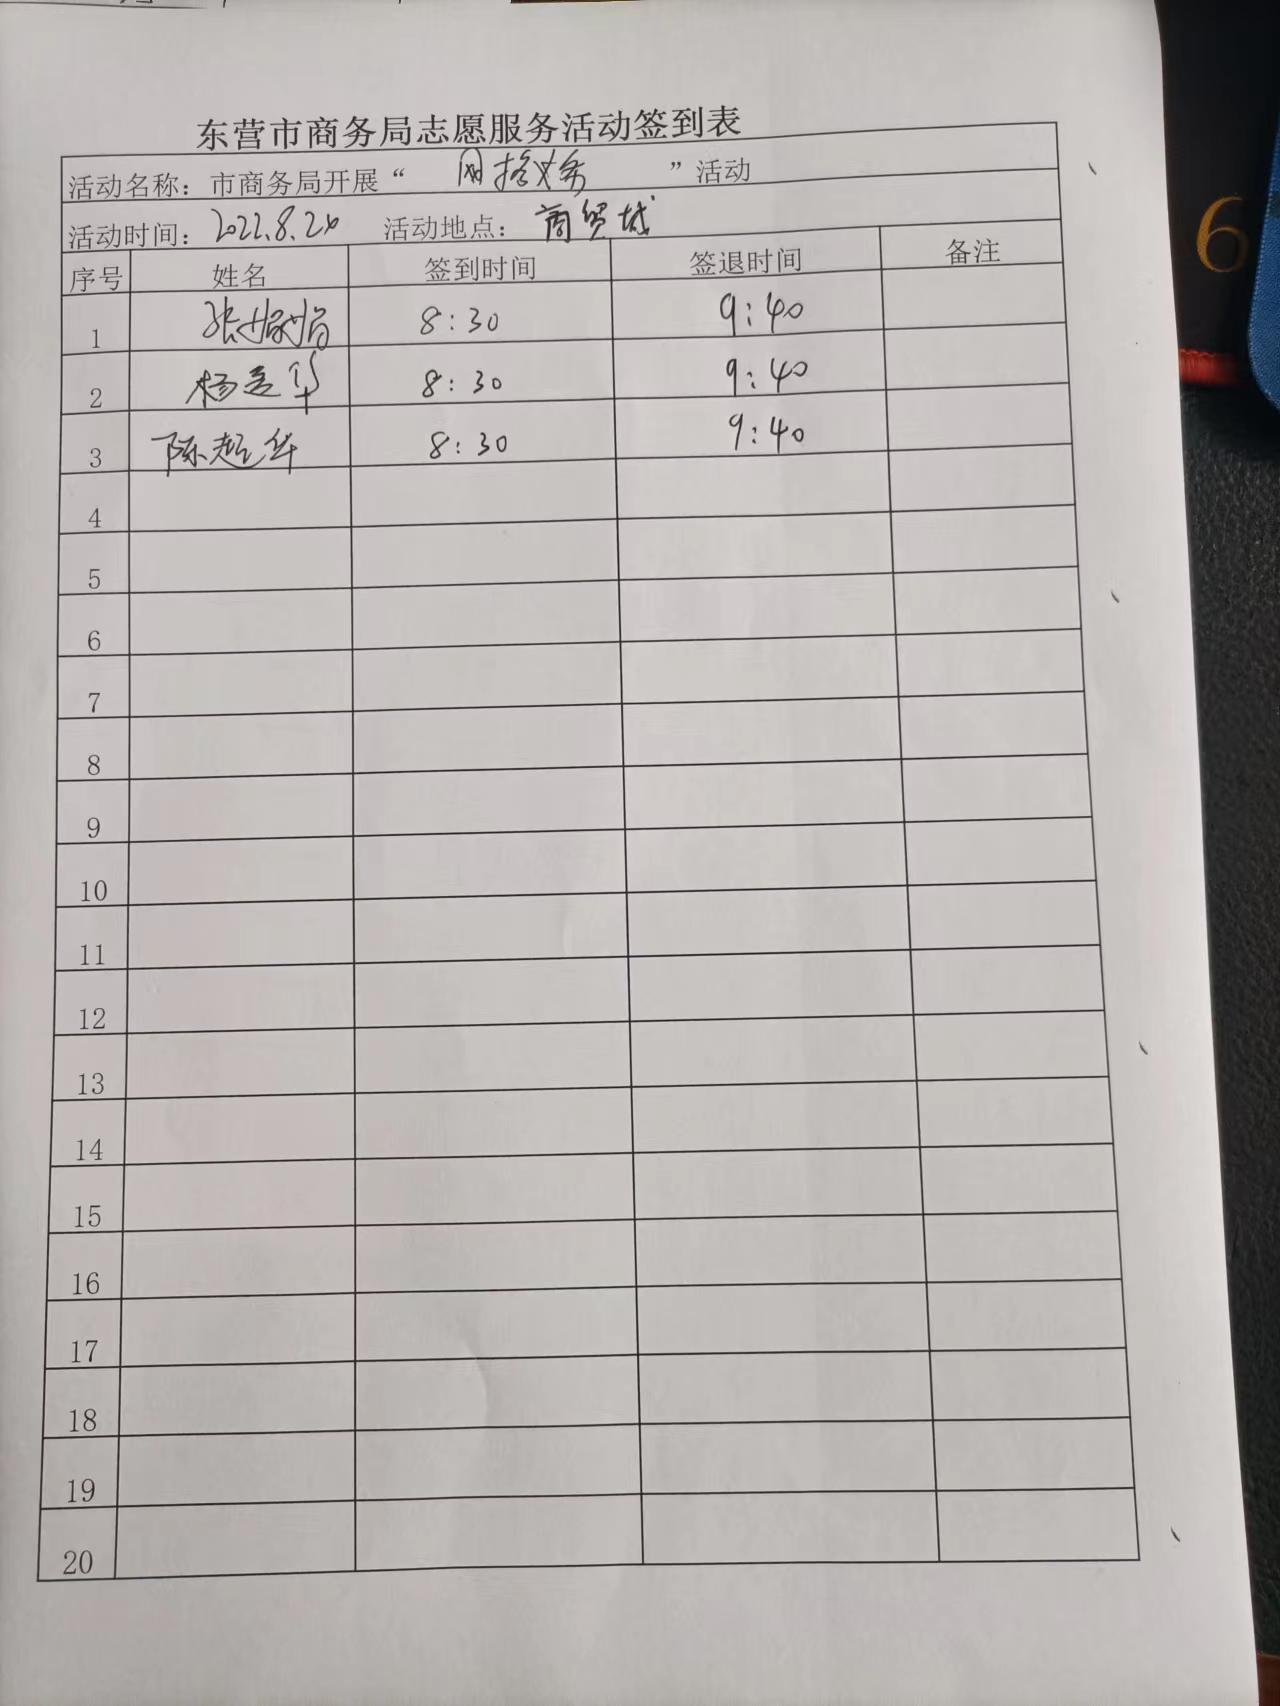 东营市商务局志愿服务活动签到表
活动名称：市商务局开展“ 网格义务 ”活动
活动时间：2022.8.20 活动地点：商贸城
序号 姓名 签到时间 签退时间 备注
1 张娟娟 8:30 9:40
2 杨 华 8:30 9:40
3 陈超华 8:30 9:40
4
5
6
7
8
9
10
11
12
13
14
15
16
17
18
19
20
6